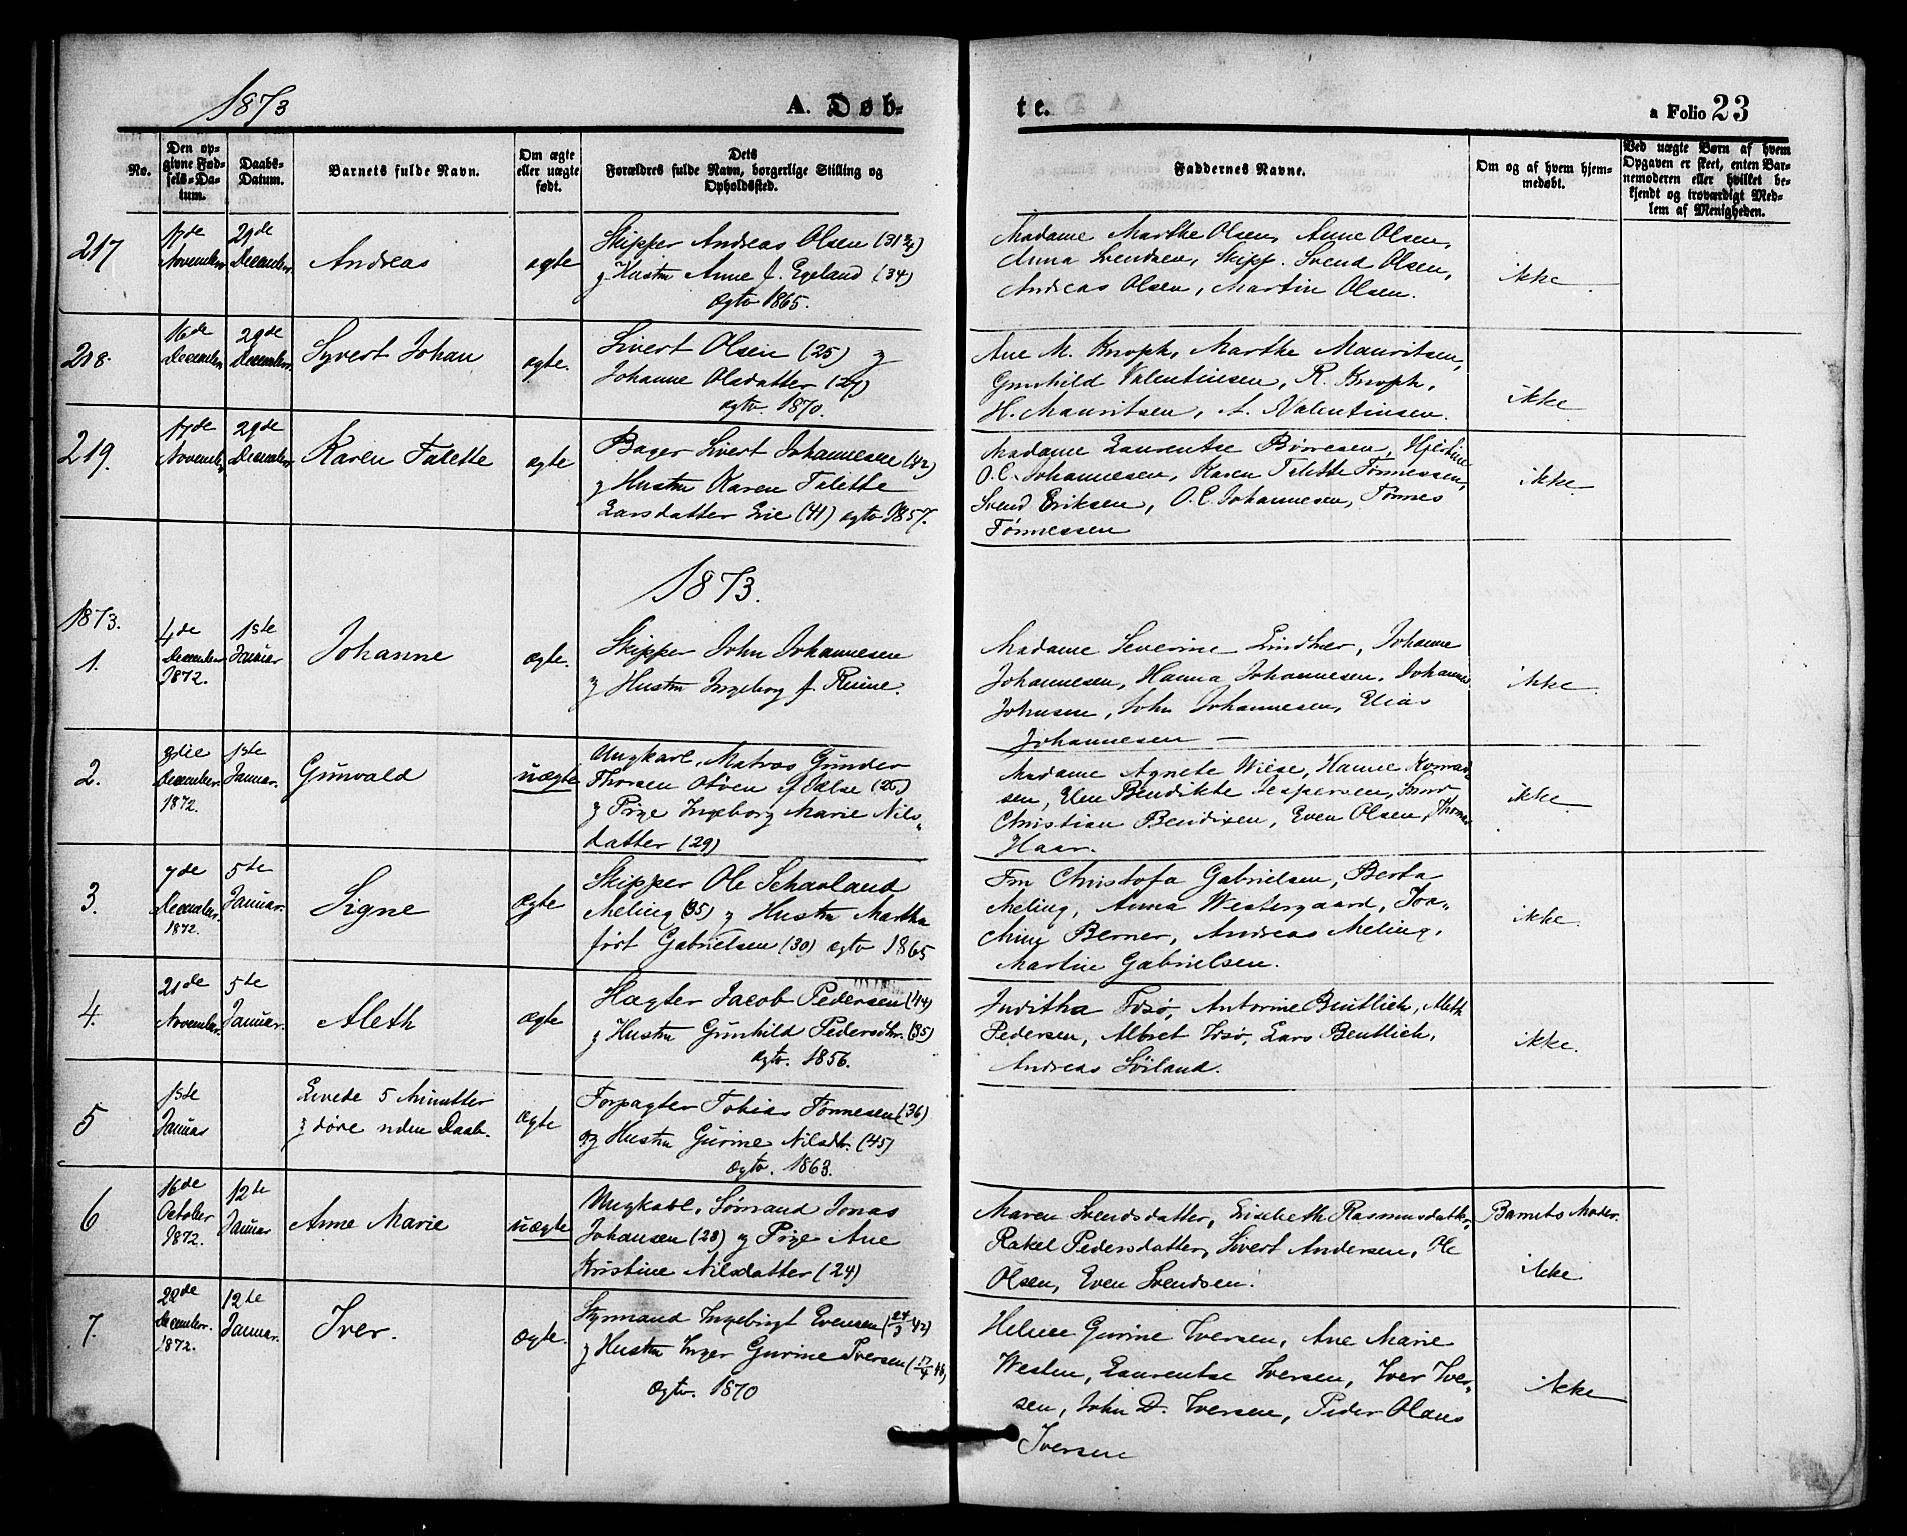 1873
A. Døb-
te.
a Folio 23
No.
Den op-
givne Fød-
sels-Da-
tum.
Daabs-
Datum.
Barnets fulde Navn.
Om ægte
eller uægte
født.
Dets
Forældres fulde Navn, borgerlige Stilling og
Opholdssted.
Faddernes Navne.
Om og af hvem hjem-
medøbt.
Ved uægte Børn af hvem
Opgaven er skeet, enten Bar-
nemoderen eller hvilket be-
kjendt og troværdigt Med-
lem af Menigheden.
217
17de
November
29de
December
Andreas
ægte
Skipper Andreas Olsen (31 3/4)
og Hustru Anne f. Egeland (34)
ægtv 1865.
Madame Marthe Olsen, Anne Olsen,
Anna Svendsen, Skipp. Svend Olsen,
Andreas Olsen, Martin Olsen.
ikke
218.
16de
December
29de
December
Syvert Johan
ægte.
Sivert Olsen (25) og
Johanne Olsdatter (27)
ægtv. 1870.
Ane M. Knoph, Marthe Mauritsen,
Gunhild Valentinsen, R. Knoph,
H. Mauritsen, A. Valentinsen.
ikke
219.
17de
November
29de
December
Karen Talette
ægte
Bager Sivert Johannesen (42)
og Hustru Karen Talette
Larsdatter Eie (41) ægtv 1857.
Madame Laurentse Børresen, Hjertine
O. C. Johannesen, Karen Talette Tønnessen,
Svend Eriksen, O. C. Johannesen, Tønnes
Tønnessen
ikke.
1873.
1873.
1.
4de
December
1872.
1ste
Januar
Johanne
ægte.
Skipper John Johannesen
og Hustru Ingeborg f. Ruine.
Madame Severine Lindtner, Johanne
Johannesen, Hanna Johannesen, Johanna
Johnsen, John Johannesen, Elias
Johannesen —
ikke.
2.
3die
December
1872.
1ste
Januar.
Gunvald
uægte
Ungkarl, Matros Gunder
Thorsen Otven af Salse (26)
og Pige Ingeborg Marie Nils-
datter (29)
Madame Agnete Wiese, Hanne Konrad-
sen, Elen Bendikte Jespersen, Knud
Christian Bendixen, Even Olsen, Thomas
Haar.
ikke
3.
7de
December
1872.
5te
Januar.
Signe
ægte
Skipper Ole Schavland
Meling (35) og Hustru Martha
født Gabrielsen (30) ægtv 1865
Fru Christofa Gabrielsen, Berta
Meling, Anna Westergaard, Joa-
chim Berner, Andreas Meling,
Martin Gabrielsen.
ikke.
4.
21de
November.
5te
Januar.
Aleth
ægte
Hægter Jacob Pedersen (44)
og Hustru Gunhild Pedersdtr. (35)
ægtv. 1856.
Juditha Idsø, Antonne Bentlich, Aleth
Pedersen, Albret Idsø, Lars Bentlich,
Andreas Soiland.
ikke.
5
1ste
Januar
Levede 5 Minutter
og døde uden Daab.
ægte
Forpagter Tobias Tønnesen (36)
og Hustru Gurine Nilsdtr. (45)
ægtv. 1863.
6
16de
October
1872.
12te
Januar
Anne Marie
uægte
Ungkarl, Sømand Jonas
Johansen (23) og Pige Ane
Kristine Nilsdatter (24)
Maren Svendsdatter, Elisabeth Rasmusdatter,
Rakel Pedersdatter, Sivert Andersen, Ole
Olsen, Even Svendsen.
Barnets Moder.
ikke
7.
22de
December.
1872.
12te
Januar.
Iver.
ægte.
Styrmand Ingebrigt Evensen (24/3 42)
og Hustru Inger Gurine Iversen (17/4 48)
ægtv. 1870
Helene Gurine Iversen, Ane Marie
Westen, Laurentse Iversen, Iver Iver-
sen, John D. Iversen, Peder Olaus
Iversen
ikke